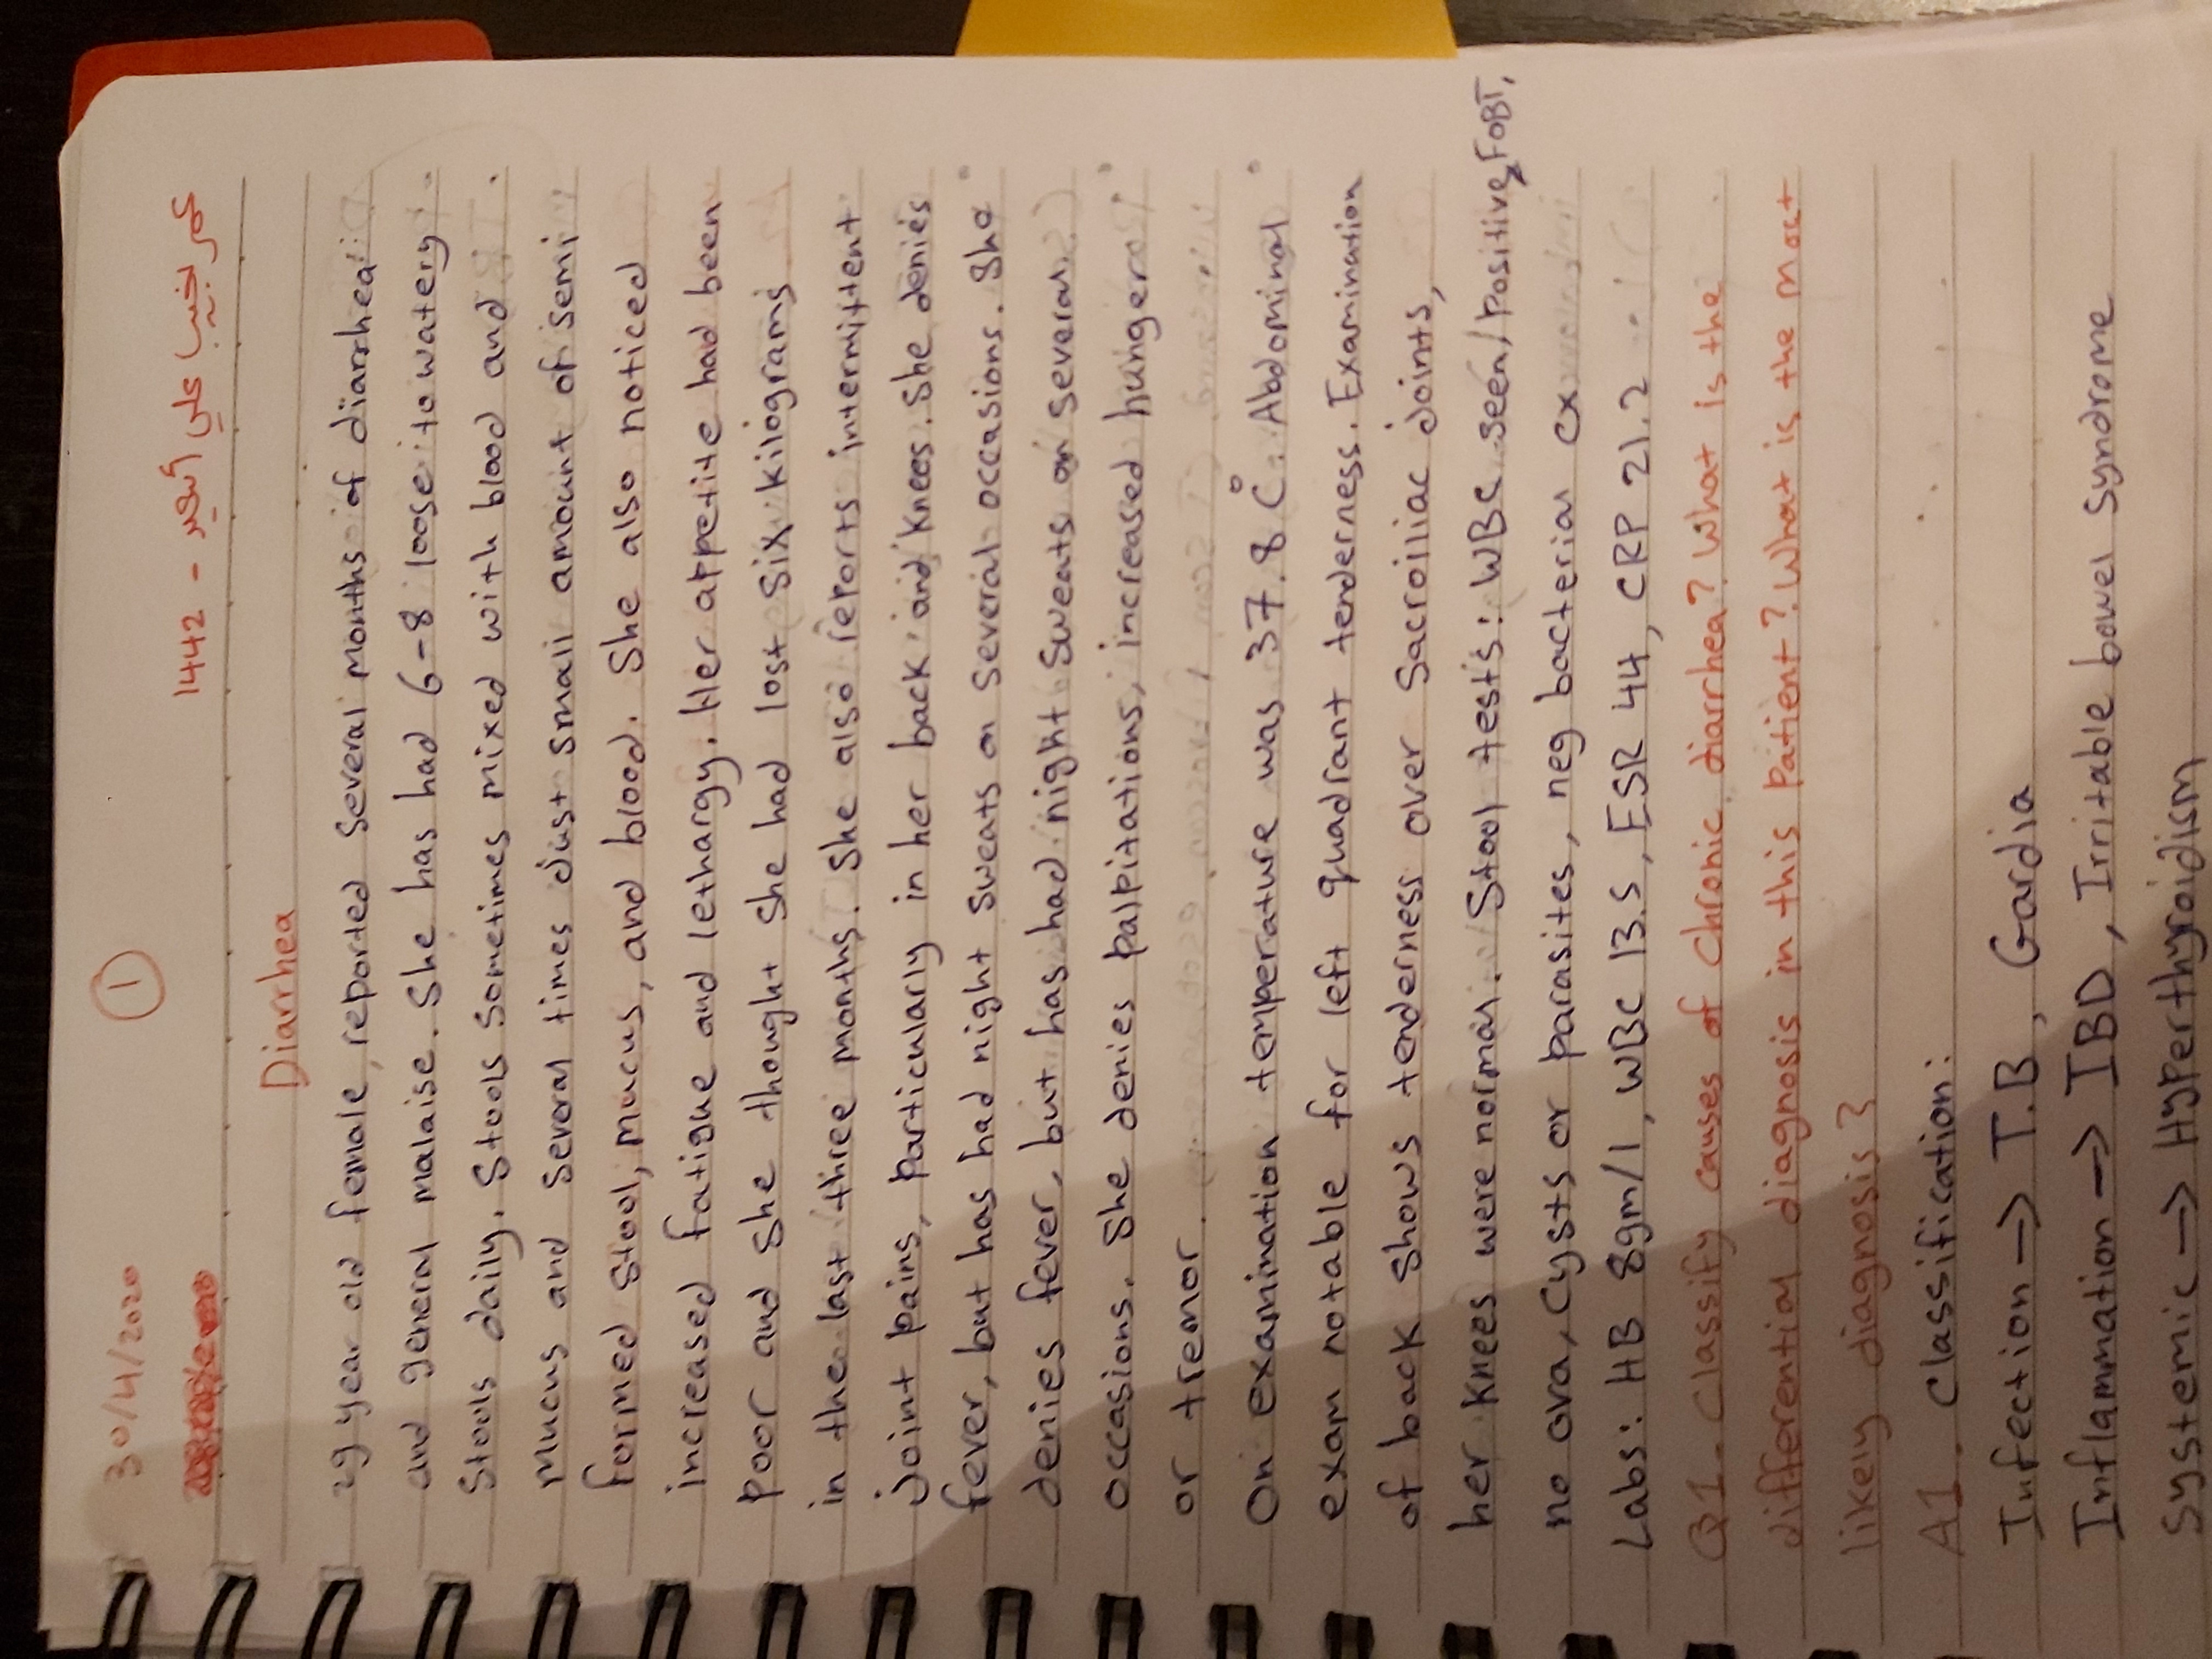 30/4/2020
①
عمر نجيب علي أحمد - 1442
Diarrhea
29 year old female, reported several months of diarrhea
and general malaise. She has had 6-8 loose to watery
stools daily. Stools sometimes mixed with blood and
mucus and several times just small amount of semi
formed stool, mucus, and blood. She also noticed
increased fatigue and lethargy. Her appetite had been
poor and she thought she had lost six kilograms
in the last three months. She also reports intermittent
joint pains, particularly in her back and knees. She denies
fever, but has had night sweats on several occasions. She
denies fever, but has had night sweats on several
occasions. She denies palpitations, increased hunger
or tremor.
On examination temperature was 37.8 C°. Abdominal
exam notable for left quadrant tenderness. Examination
of back shows tenderness over sacroiliac joints,
her knees were normal. Stool tests: WBC seen, positive FOBT,
no ova, cysts or parasites, neg bacterial cx
Labs: HB 8gm/l, WBC 13.5, ESR 44, CRP 21.2
Q1. Classify causes of chronic diarrhea? What is the
differential diagnosis in this patient? What is the most
likely diagnosis?
A1. Classification:
Infection → T.B, Gardia
Inflammation → IBD, Irritable bowel syndrome
Systemic → Hyperthyroidism